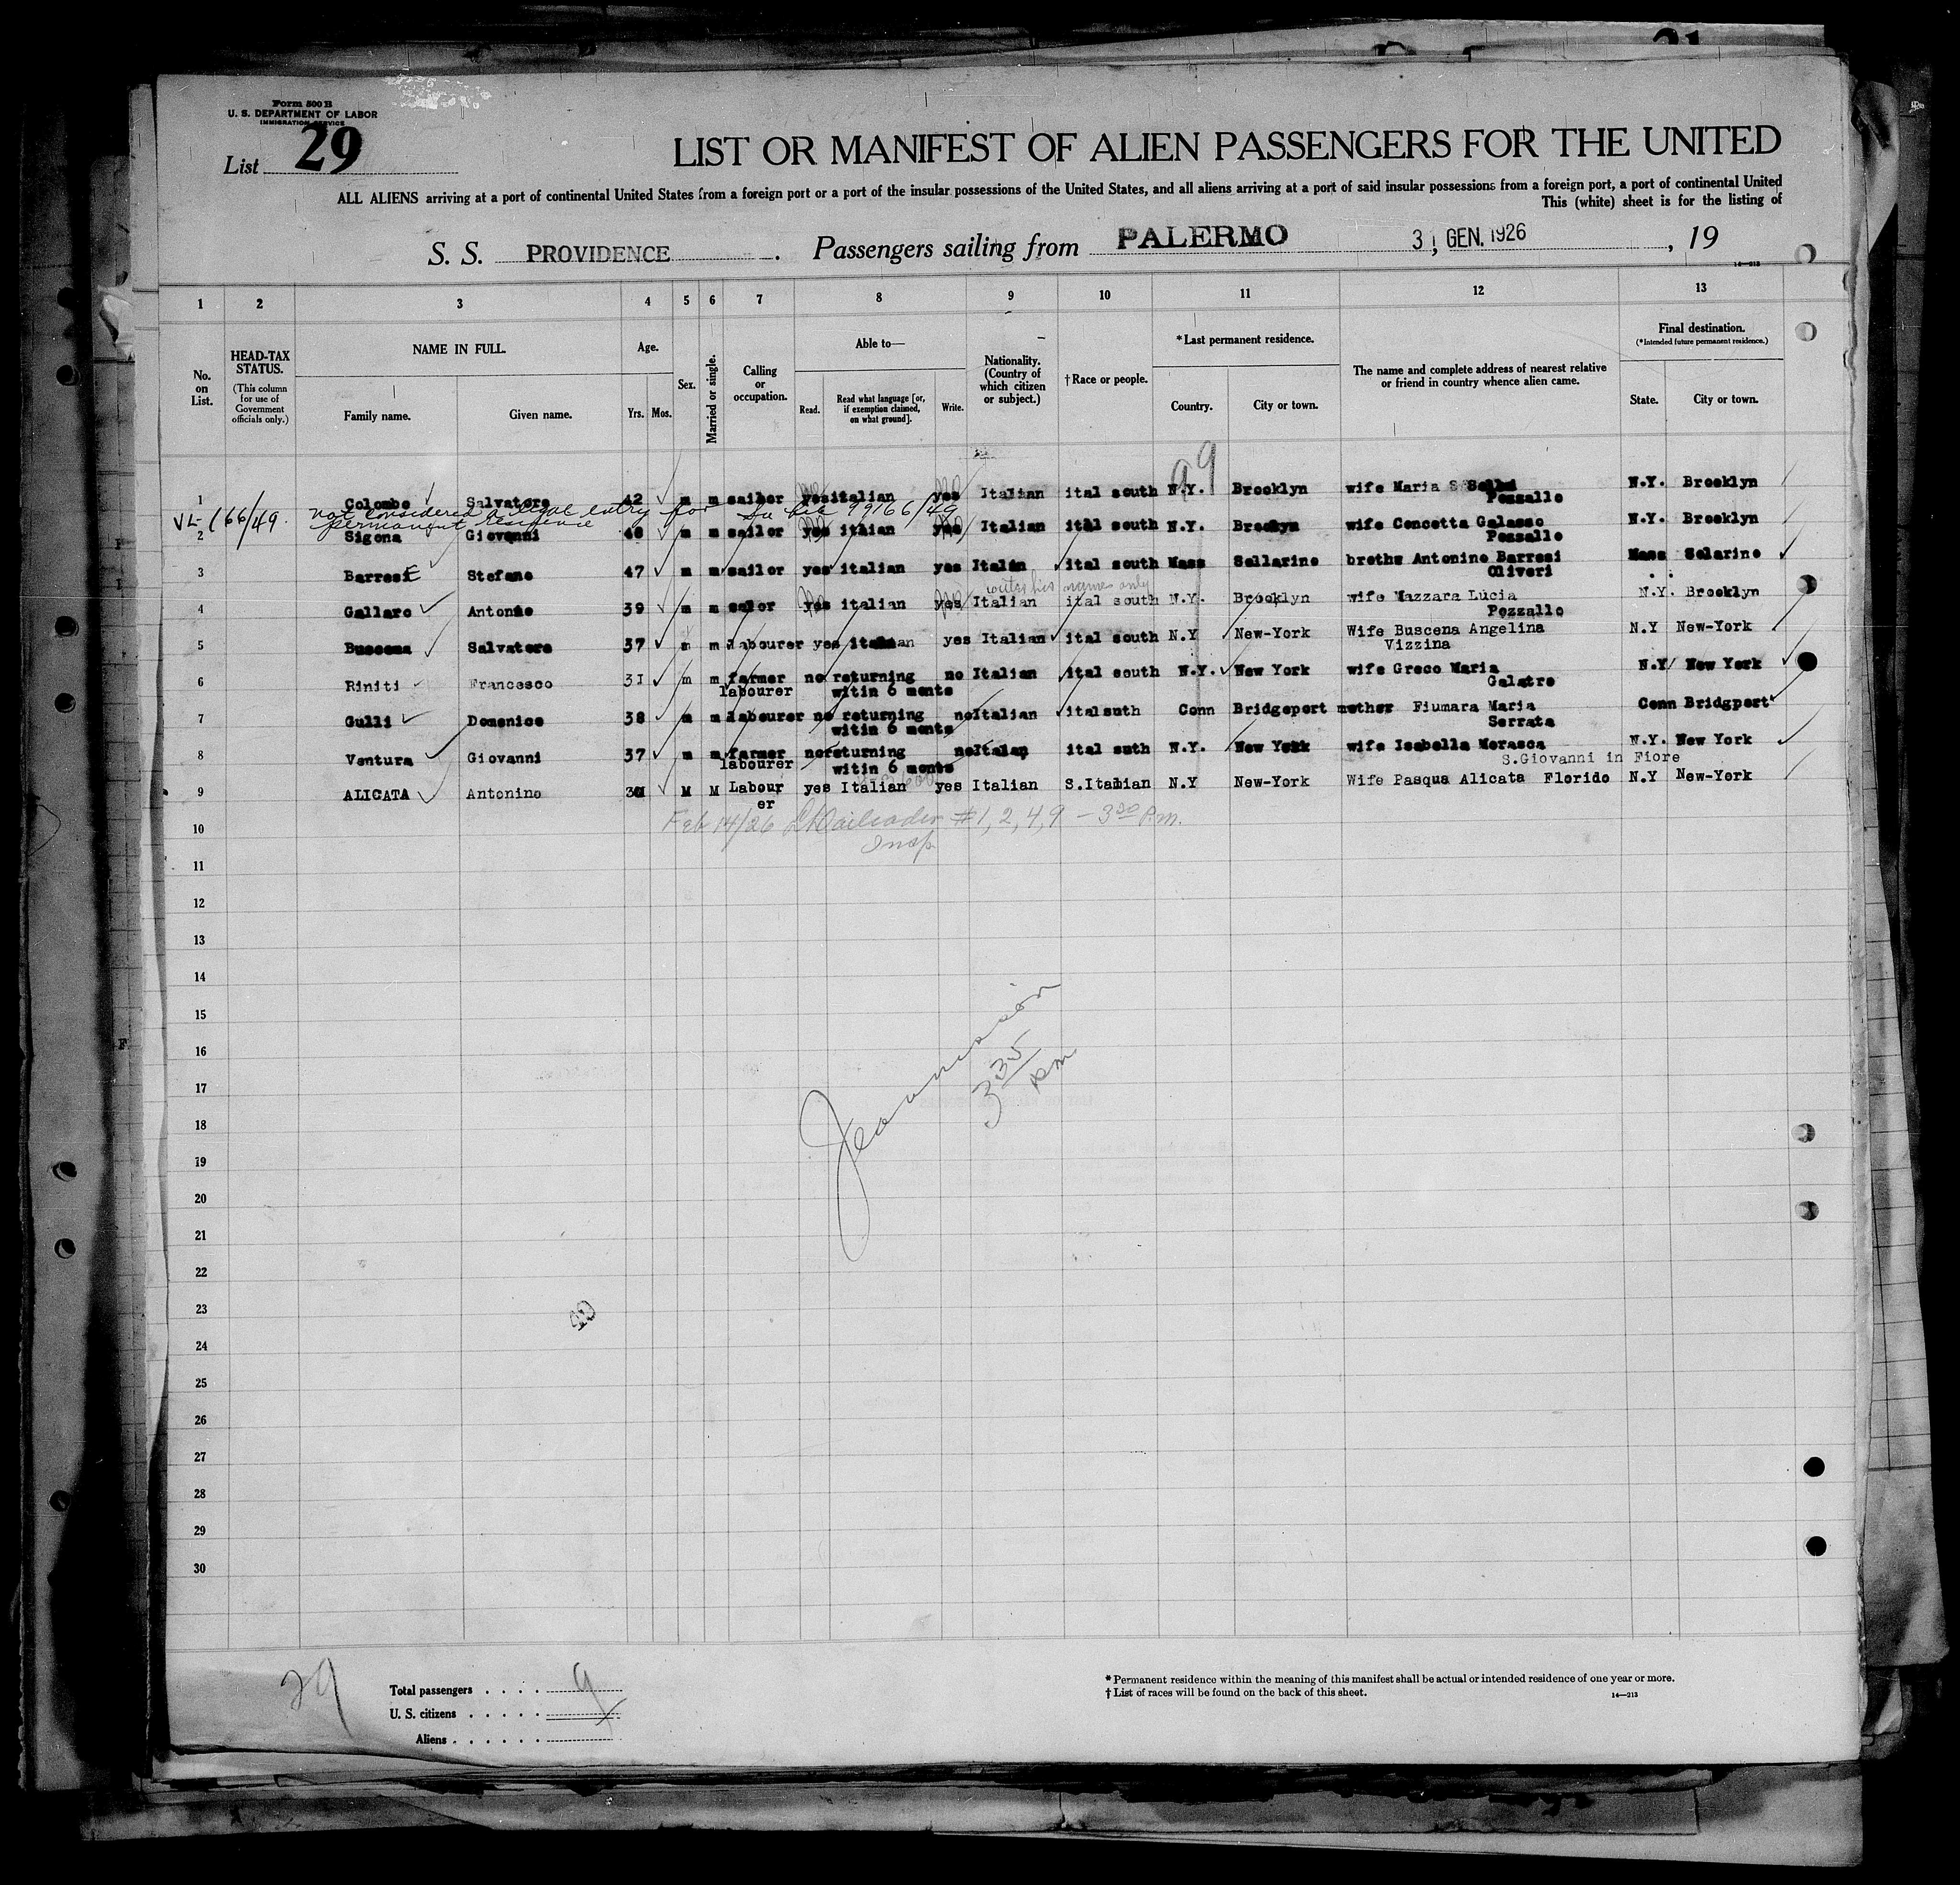 Form 500 B
U. S. DEPARTMENT OF LABOR
IMMIGRATION SERVICE
List 29
LIST OR MANIFEST OF ALIEN PASSENGERS FOR THE UNITED
ALL ALIENS arriving at a port of continental United States from a foreign port or a port of the insular possessions of the United States, and all aliens arriving at a port of said insular possessions from a foreign port, a port of continental United
This (white) sheet is for the listing of
S. S. PROVIDENCE . Passengers sailing from PALERMO 31 GEN. 1926 , 19
14—213
1 2 3 4 5 6 7 8 9 10 11 12 13
No. on List.
HEAD-TAX STATUS.
(This column for use of Government officials only.)
NAME IN FULL.
Family name. Given name.
Age.
Yrs. Mos.
Sex.
Married or single.
Calling or occupation.
Able to—
Read. Read what language [or, if exemption claimed, on what ground]. Write.
Nationality. (Country of which citizen or subject.)
†Race or people.
*Last permanent residence.
Country. City or town.
The name and complete address of nearest relative or friend in country whence alien came.
Final destination.
(*Intended future permanent residence.)
State. City or town.
99
1 Colombo Salvatore 42 m m sailor yes italian yes Italian ital south N.Y. Brooklyn wife Maria N.Y. Brooklyn
Pozzallo
not considered a legal entry for
permanent residence
99166/49
2 Sigona Giovanni 48 m m sailor yes itlian yes Italian ital south N.Y. wife Concetta Galasso N.Y. Brooklyn
Pozzallo
3 Barresi Stefano 47 m m sailor yes italian yes Italin ital south Mass Sellarino brothe Antonino Barresi Mass Selarino
Oliveri
writes his name only
4 Gallaro Antonio 39 m m salor yes italian yes Italian ital south N.Y. Brooklyn wife Mazzara Lucia N.Y. Brooklyn
Pozzallo
5 Buscema Salvatore 37 m m labourer yes italian yes Italian ital south N.Y New-York Wife Buscena Angelina N.Y New-York
Vizzina
6 Riniti Francesco 31 m m farmer no returning no Italian ital south N.Y. New York wife Greco Maria N.Y New York
labourer witin 6 monts Galatro
7 Gulli Domenico 38 m m labourer no returning no Italian ital suth Conn Bridgeport mother Fiumara Maria Conn Bridgport
witin 6 monts Serrata
8 Ventura Giovanni 37 m m farmer no returning no Italian ital suth N.Y. New York wife Isabella Morasca N.Y. New York
labourer witin 6 monts S.Giovanni in Fiore
9 ALICATA Antonino M M Labour yes Italian yes Italian S.Italian N.Y New-York Wife Pasqua Alicata Florido N.Y New-York
er
10 Feb 14/26 #1, 2, 4, 9 — 3 30 P.m.
Insp
11
12
13
14
15
16
17
18
19
20
21
22
23
24
25
26
27
28
29
30
3 35 pm
29
Total passengers . . . . 9
U. S. citizens . . . . .
Aliens . . . . . .
* Permanent residence within the meaning of this manifest shall be actual or intended residence of one year or more.
† List of races will be found on the back of this sheet.
14—213